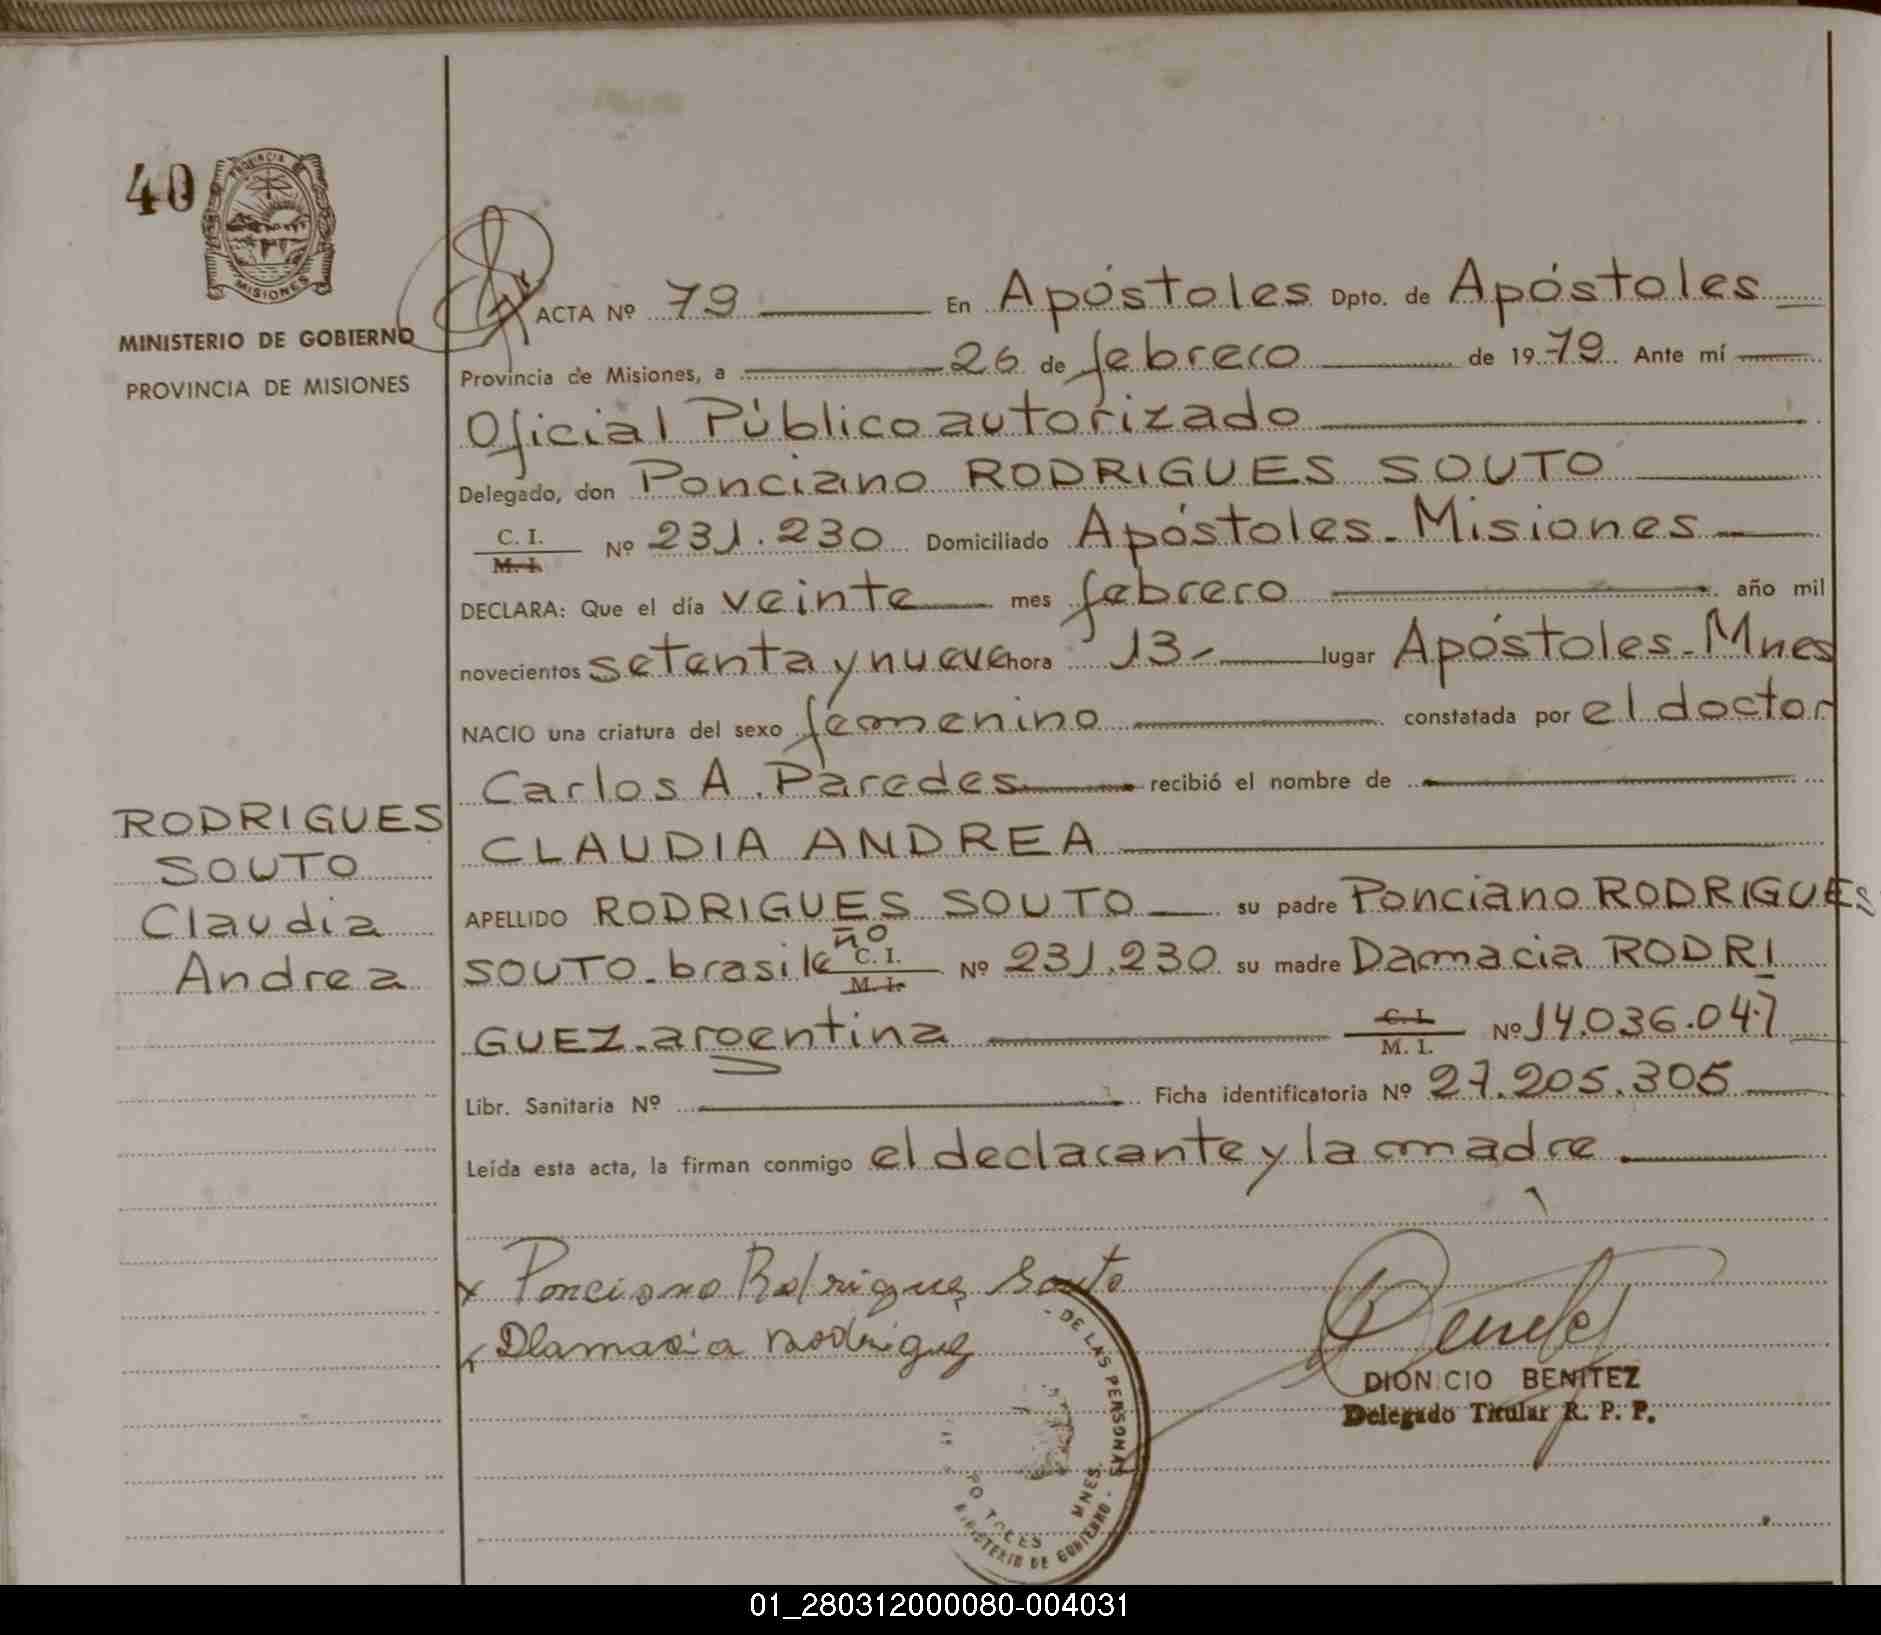 40
PROVINCIA DE
MISIONES
MINISTERIO DE GOBIERNO
PROVINCIA DE MISIONES
RODRIGUES
SOUTO
Claudia
Andrea
ACTA Nº 79 En Apóstoles Dpto. de Apóstoles
Provincia de Misiones, a 26 de febrero de 1979 Ante mí
Oficial Público autorizado
Delegado, don Ponciano RODRIGUES SOUTO
C. I.
M. I.
Nº 231.230 Domiciliado Apóstoles - Misiones
DECLARA: Que el día veinte mes febrero año mil
novecientos setenta y nueve hora 13- lugar Apóstoles - Mnes
NACIO una criatura del sexo femenino constatada por el doctor
Carlos A. Paredes recibió el nombre de
CLAUDIA ANDREA
APELLIDO RODRIGUES SOUTO su padre Ponciano RODRIGUES
SOUTO - brasileño C. I. M. I. Nº 231.230 su madre Damacia RODRI
GUEZ - argentina C. I. M. I. Nº 14.036.047
Libr. Sanitaria Nº Ficha identificatoria Nº 27.205.305
Leída esta acta, la firman conmigo el declarante y la madre
x Ponciano Rodrigues Souto
x Dlamasia Rodriguez
DE LAS PERSONAS
MNES.
MINISTERIO DE GOBIERNO
DIONICIO BENITEZ
Delegado Titular R. P. P.
01_280312000080-004031